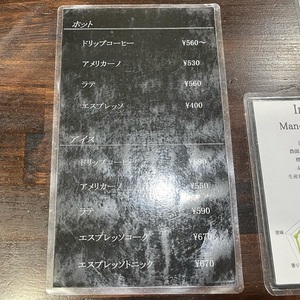 ホット
ドリップコーヒー ¥560〜
アメリカーノ ¥530
ラテ ¥560
エスプレッソ ¥400
アイス
ドリップコーヒー
アメリカーノ ¥550
ラテ ¥590
エスプレッソコーク ¥670
エスプレッソトニック ¥670